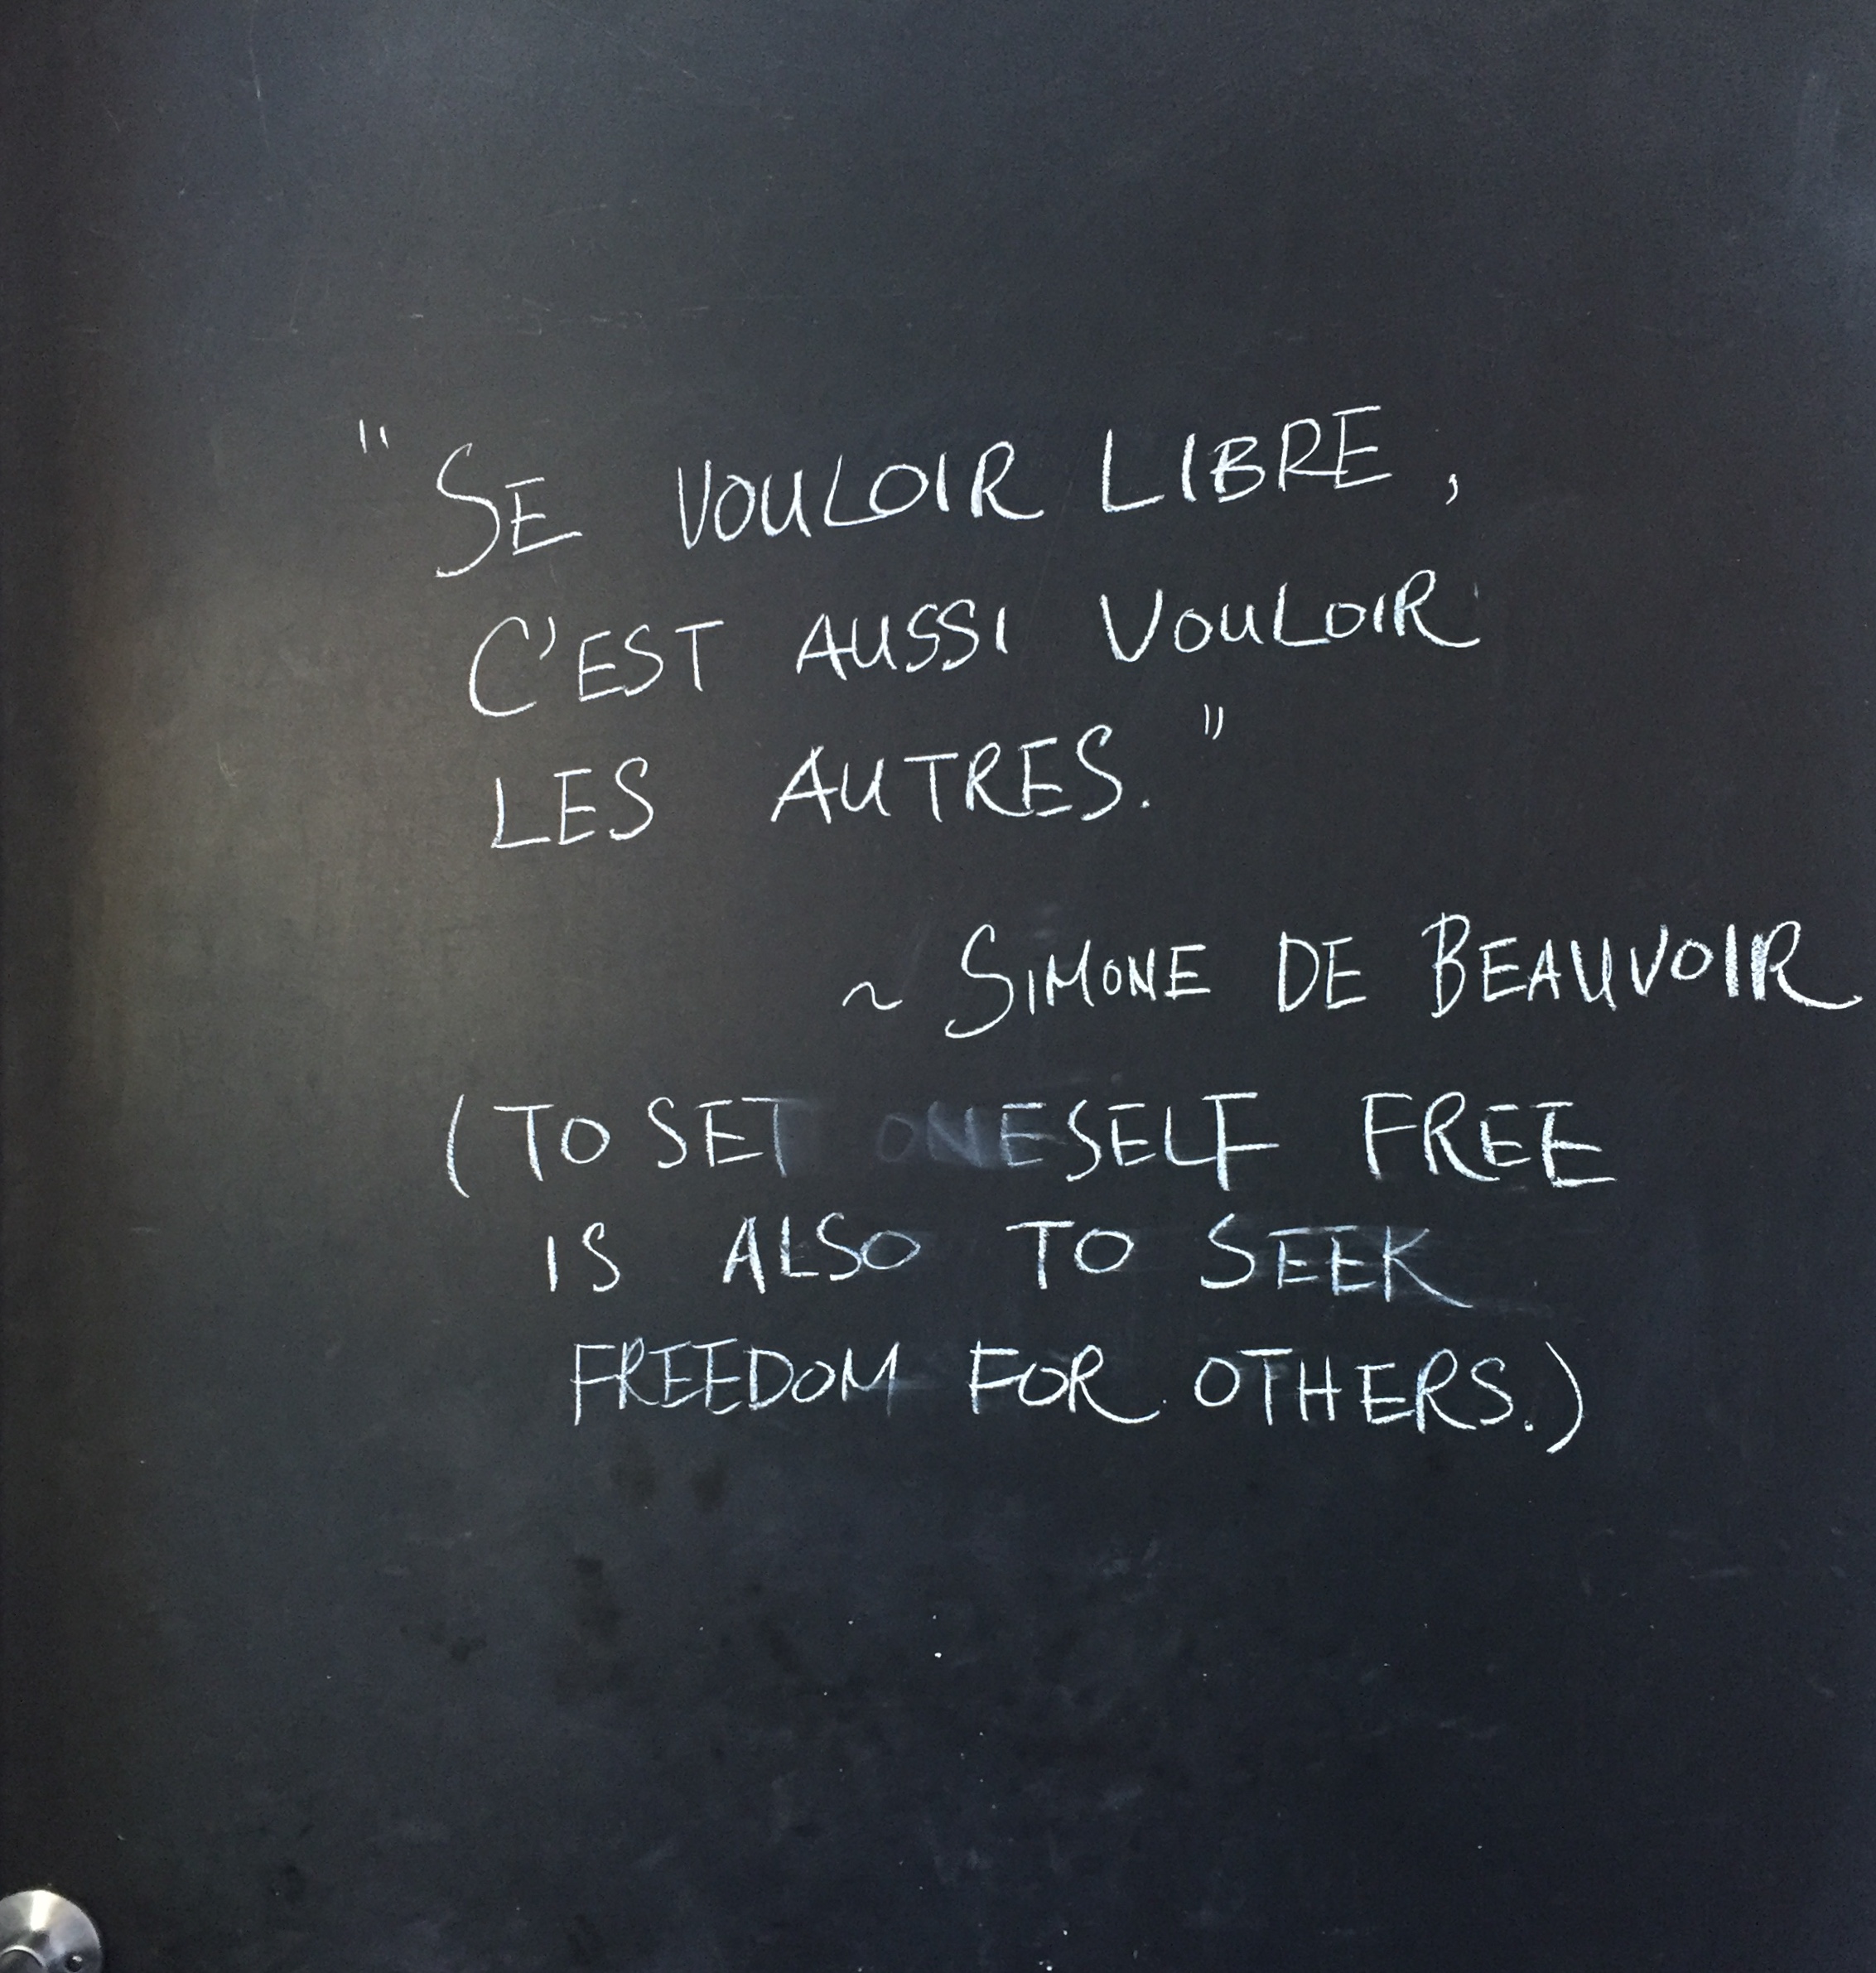 "SE VOULOIR LIBRE,
C'EST AUSSI VOULOIR
LES AUTRES."
~ SIMONE DE BEAUVOIR
(TO SET ONESELF FREE
IS ALSO TO SEEK
FREEDOM FOR OTHERS.)